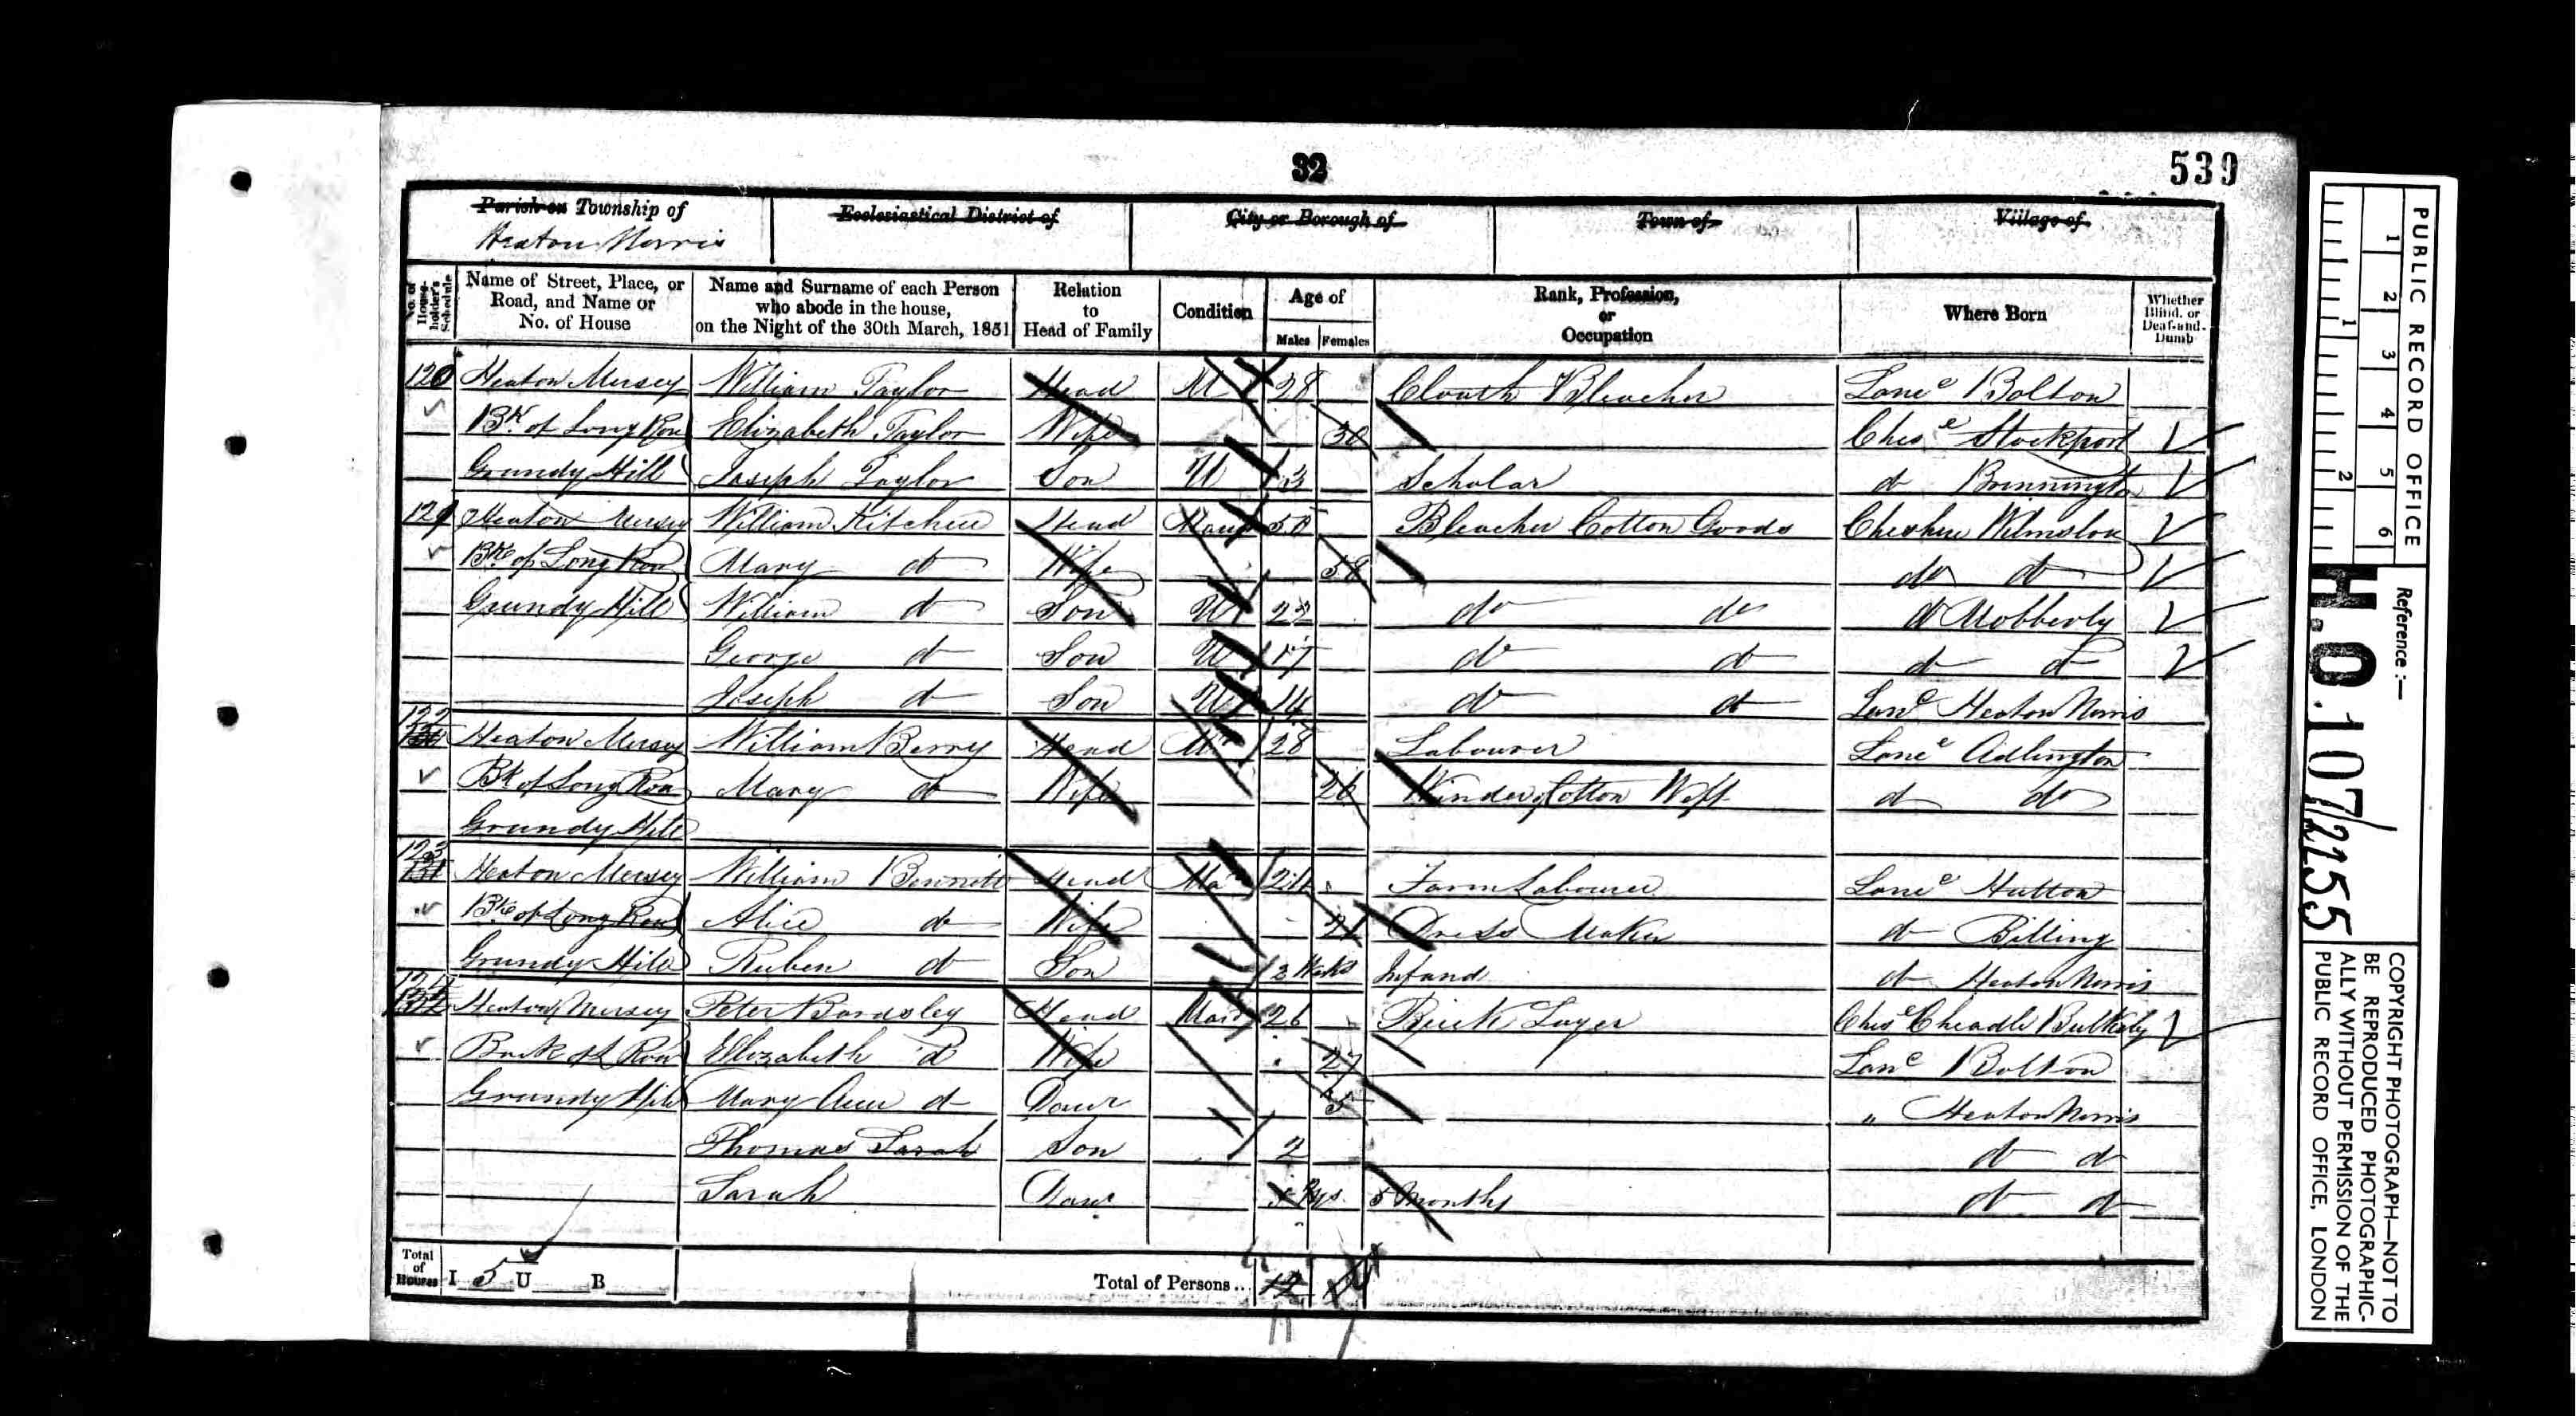 32
539
Parish or Township of
Heaton Norris
Ecclesiastical District of
City or Borough of
Town of
Village of
No. of House-holder's Schedule
Name of Street, Place, or Road, and Name or No. of House
Name and Surname of each Person who abode in the house, on the Night of the 30th March, 1851
Relation to Head of Family
Condition
Age of
Males Females
Rank, Profession, or Occupation
Where Born
Whether Blind, or Deaf-and-Dumb
120 Heaton Mersey William Taylor Head M 28 Clouth Bleacher Lanc e Bolton
Bk of Long Row Elizabeth Taylor Wife 30 Ches e Stockport
Grundy Hill Joseph Taylor Son U 3 Scholar d Brinnington
121 Heaton Mersey William Kitchen Head 50 Bleacher Cotton Goods Cheshire Wilmslow
Bk of Long Row Mary d Wife 58 do d
Grundy Hill William d Son U 22 do do d Mobberly
George d Son U 17 do d d d
Joseph d Son U 14 do d Lanc e Heaton Norris
122 Heaton Mersey William Berry Head 28 Labourer Lanc e Adlington
Bk of Long Row Mary d Wife 26 Winder Cotton Weft d do
Grundy Hill
123 131 Heaton Mersey William Bennett Head Mar 24 Farm Labourer Lanc e Hutton
Bk of Long Row Alice do Wife 21 Dress Maker d Billing
Grundy Hill Ruben d Son 2 Weeks Infand d Heaton Norris
Heaton Mersey Peter Bardsley Head Mar 26 Brick Layer Ches e Cheadle Bulkely
Back of L Row Elizabeth d Wife 27 Lanc e Bolton
Grundy Hill Mary Ann d Daur 5 " Heaton Norris
Thomas Sarah Son 2 d d
Sarah Daur 5 Months d d
Total of Houses I 5 U B
Total of Persons... 12
PUBLIC RECORD OFFICE
1 2 3 4 5 6
1 2
Reference :—
H.O.107/2155
COPYRIGHT PHOTOGRAPH—NOT TO
BE REPRODUCED PHOTOGRAPHIC-
ALLY WITHOUT PERMISSION OF THE
PUBLIC RECORD OFFICE, LONDON